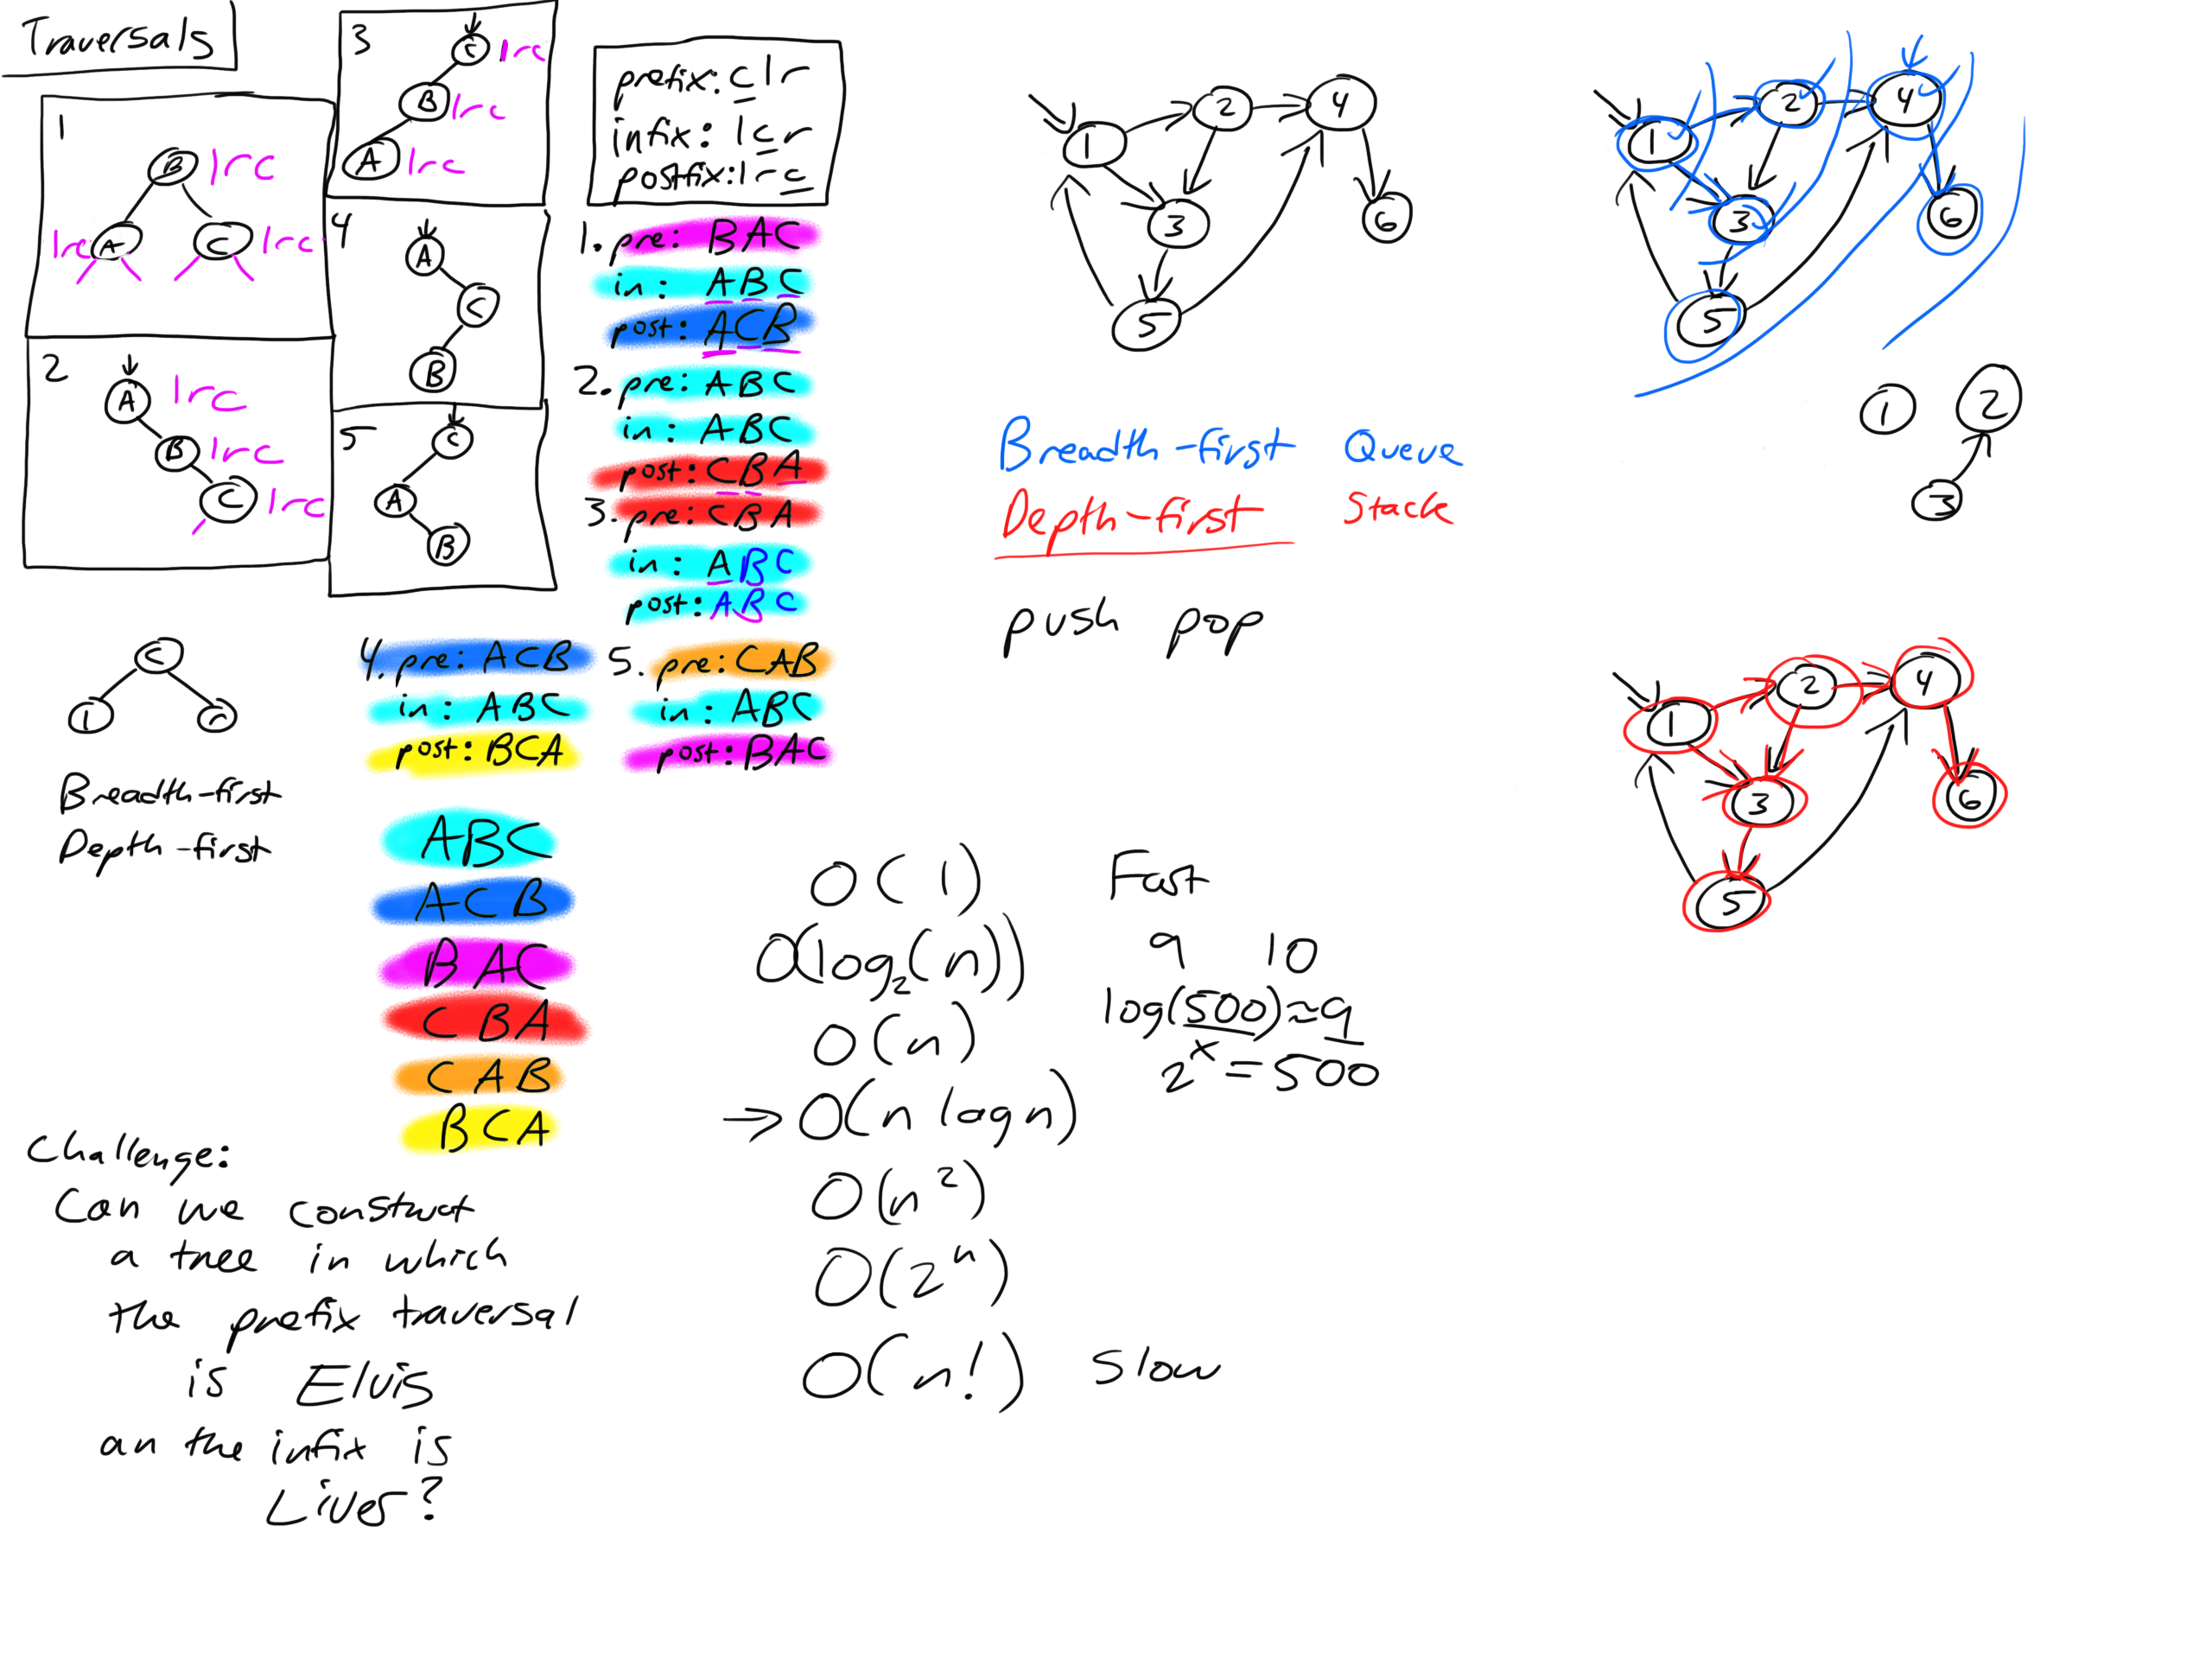 Traversals
1
B lrc
lrc A C lrc
2
A lrc
B lrc
C lrc
3
C lrc
B lrc
A lrc
4
A
C
B
5
C
A
B
prefix: clr
infix: lcr
postfix: lrc
1. pre: BAC
in: ABC
post: ACB
2. pre: ABC
in: ABC
post: CBA
3. pre: CBA
in: ABC
post: ABC
4. pre: ACB
in: ABC
post: BCA
5. pre: CAB
in: ABC
post: BAC
C
l r
Breadth-first
Depth-first
ABC
ACB
BAC
CBA
CAB
BCA
Challenge:
Can we construct
a tree in which
the prefix traversal
is Elvis
an the infix is
Lives?
1 2 4
3 6
5
Breadth-first Queue
Depth-first Stack
push pop
1 2 4
3 6
5
1 2
3
1 2 4
3 6
5
O(1) Fast
O(log₂(n)) 9 10
O(n) log(500)≈9
2ˣ=500
→ O(n log n)
O(n²)
O(2ⁿ)
O(n!) Slow